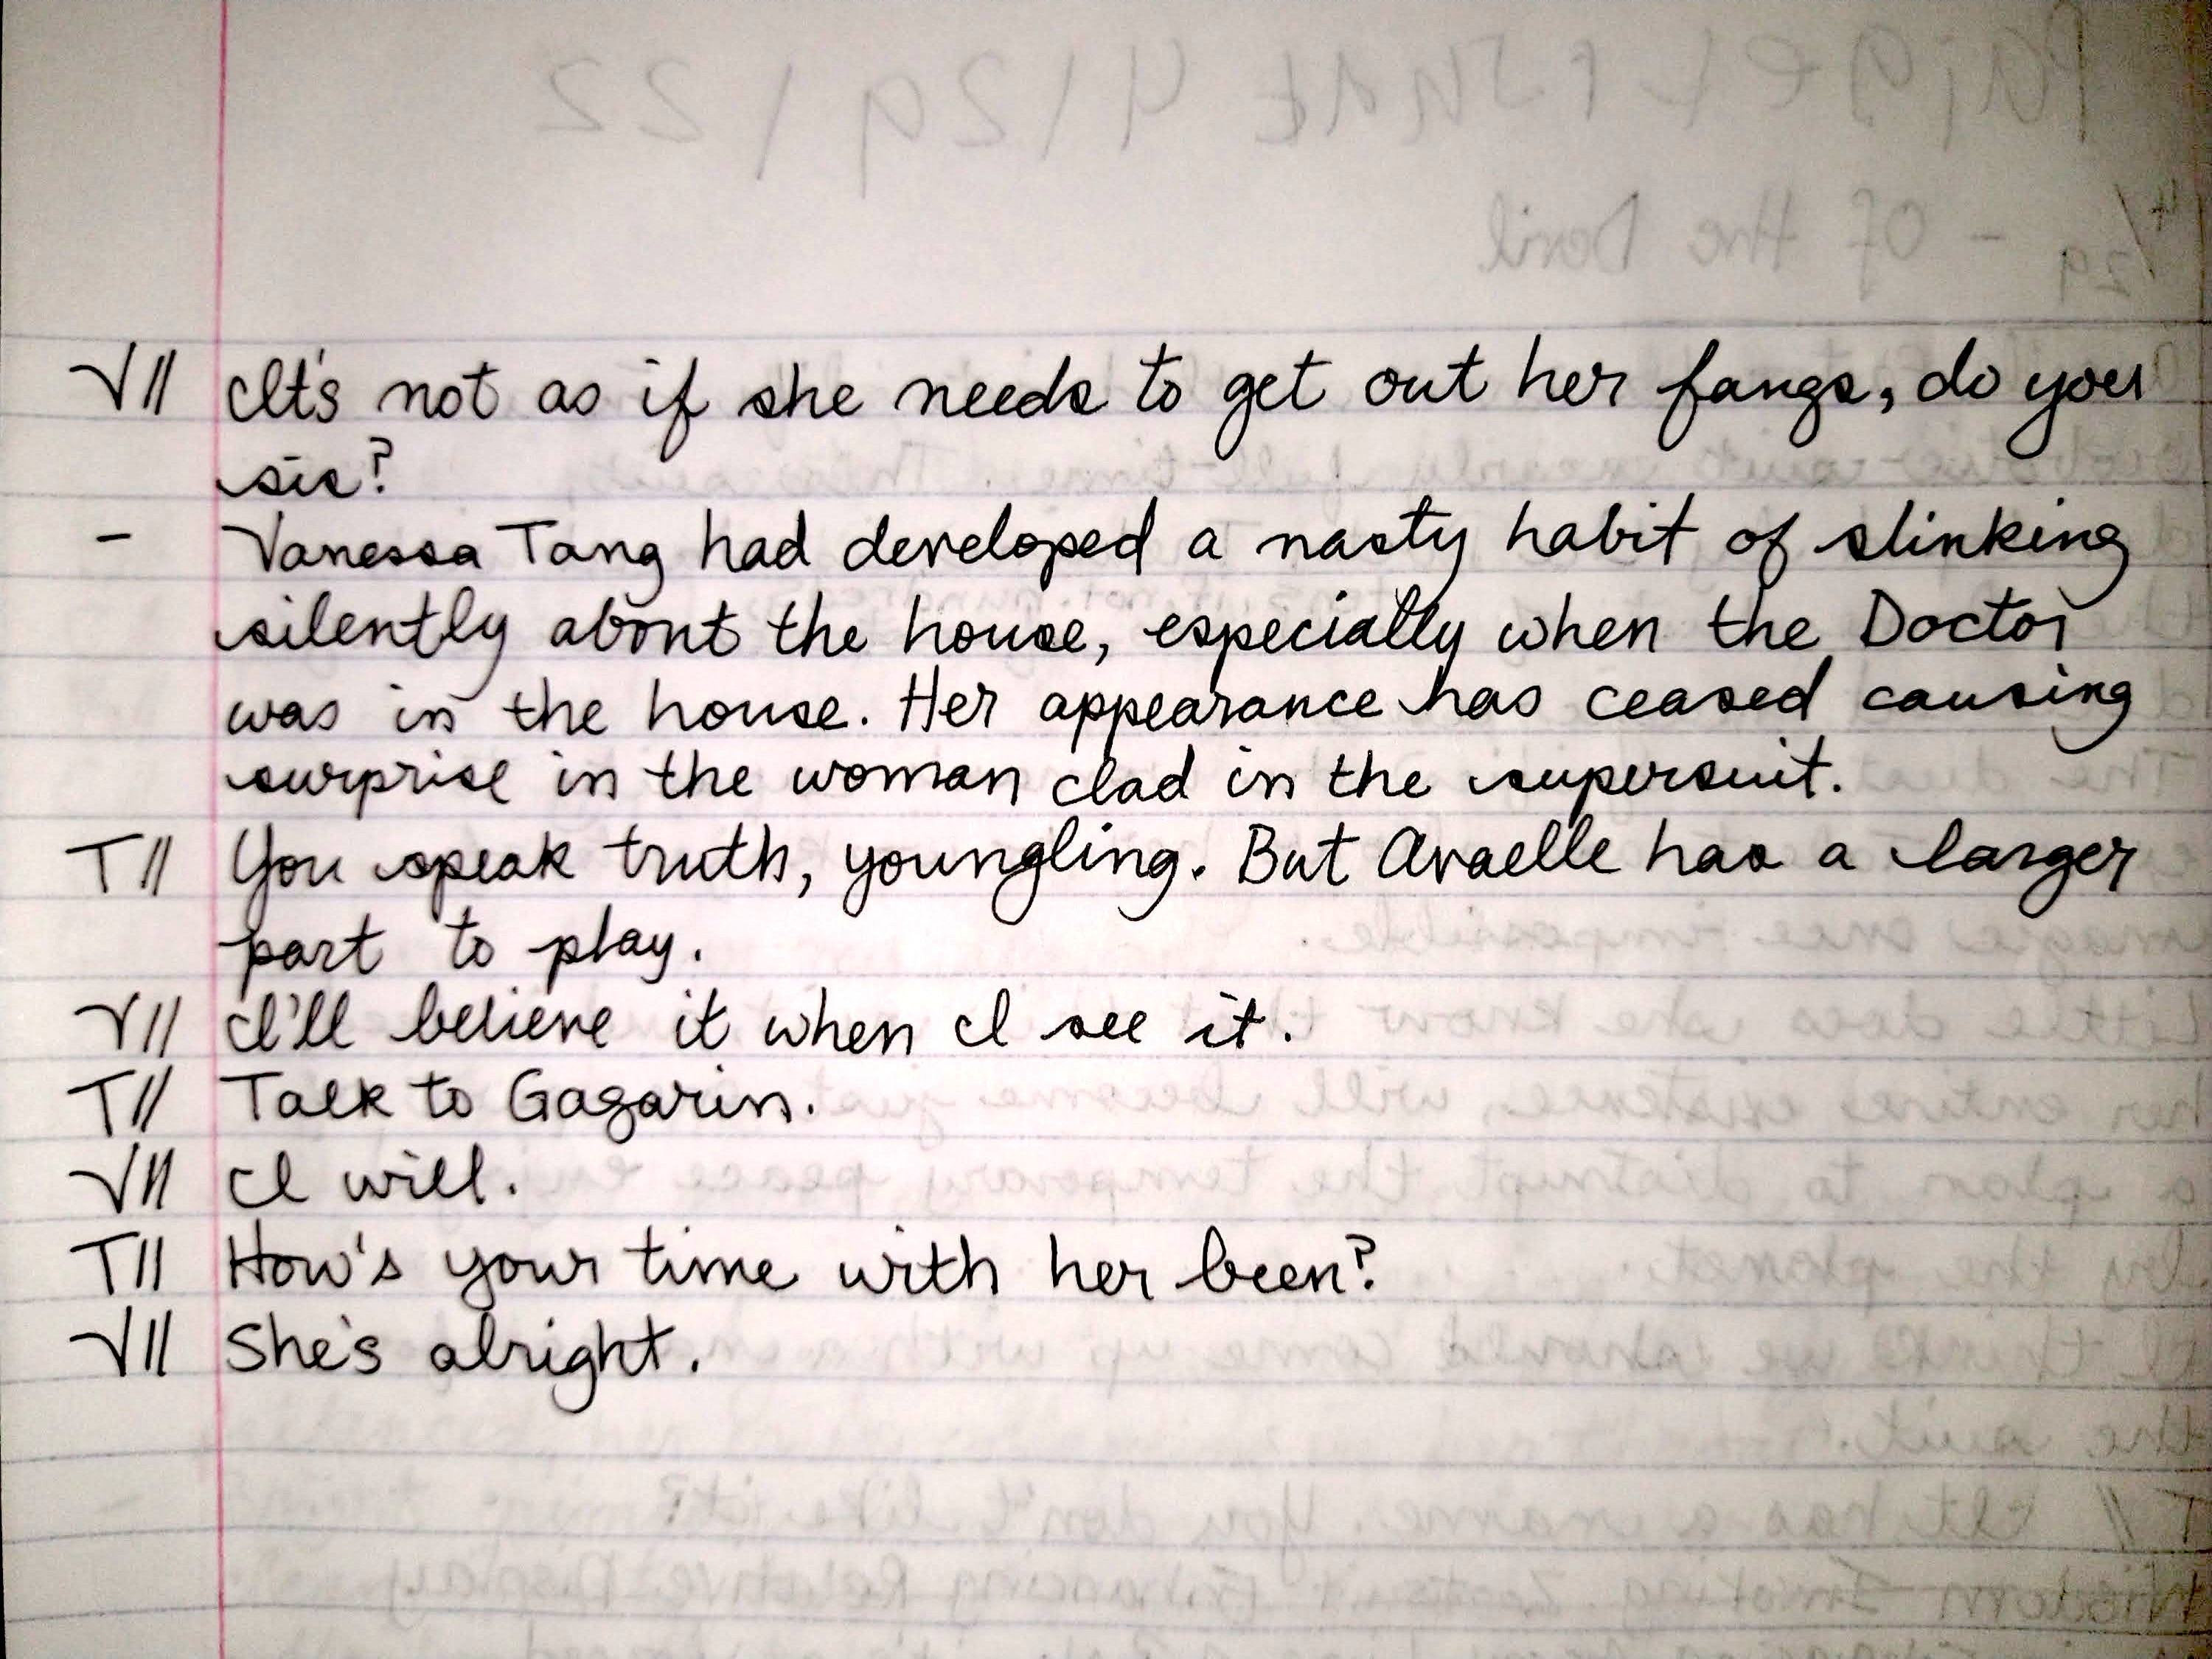 V// It's not as if she needs to get out her fangs, do you
sis?
- Vanessa Tang had developed a nasty habit of slinking
silently about the house, especially when the Doctor
was in the house. Her appearance has ceased causing
surprise in the woman clad in the supersuit.
T// You speak truth, youngling. But Avaelle has a larger
part to play.
V// I'll believe it when I see it.
T// Talk to Gagarin.
V// I will.
T// How's your time with her been?
V// She's alright.